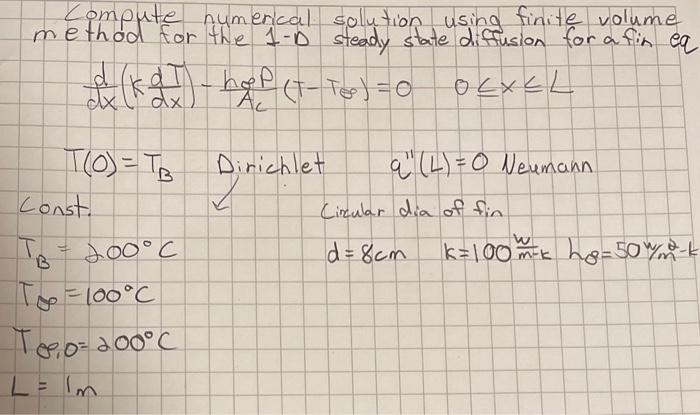 Compute numerical solution using finite volume
method for the 1-D steady state diffusion for a fin eq
d/dx (k dT/dx) - h∞P/Ac (T-T∞) = 0 0 ≤ x ≤ L
T(0) = TB Dirichlet q''(L) = 0 Neumann
Const. Circular dia of fin
TB = 200°C d = 8cm k = 100 W/m-k h∞ = 50 W/m²-k
T∞ = 100°C
T∞,0 = 200°C
L = 1m